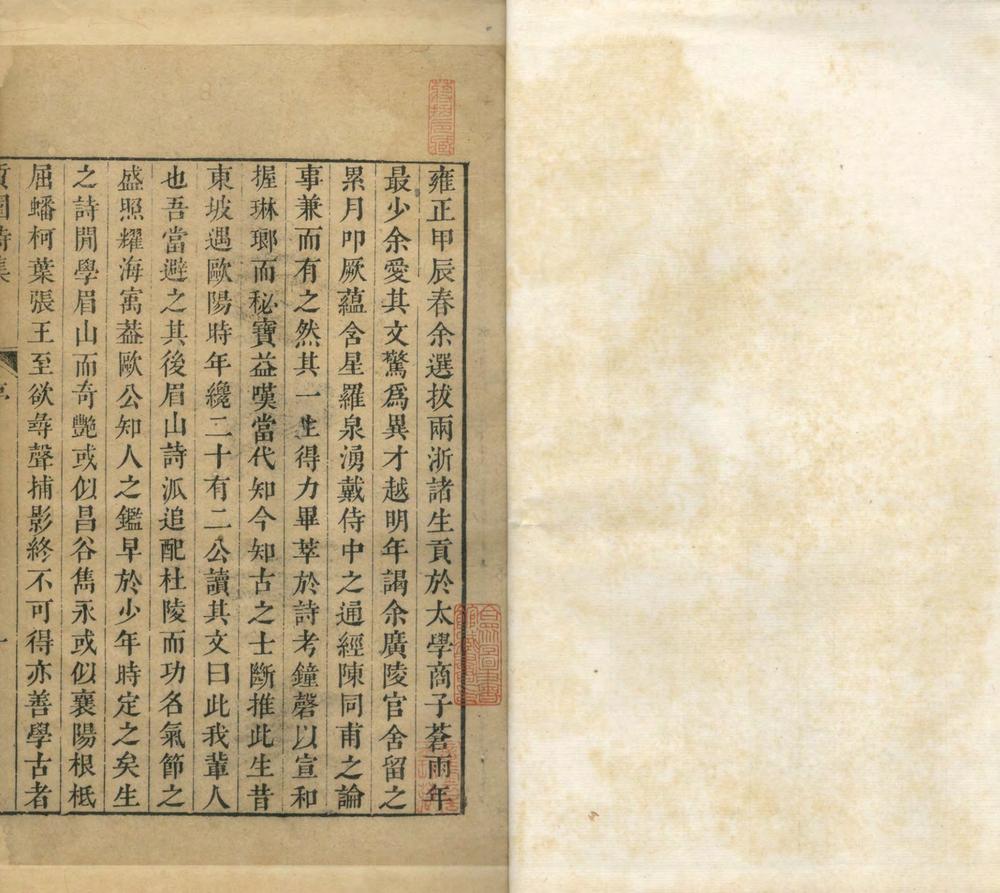 雍正甲辰春余選拔兩浙諸生貢於太學商子蒼雨年
最少余愛其文驚爲異才越明年謁余廣陵官舍留之
累月叩厥蘊含星羅泉湧戴侍中之通經陳同甫之論
事兼而有之然其一生得力畢萃於詩考鐘磬以宣和
握琳瑯而秘寶益嘆當代知今知古之士斷推此生昔
東坡遇歐陽時年纔二十有二公讀其文曰此我輩人
也吾當避之其後眉山詩派追配杜陵而功名氣節之
盛照耀海寓葢歐公知人之鑑早於少年時定之矣生
之詩開學眉山而奇艷或似昌谷雋永或似襄陽根柢
屈蟠柯葉張王至欲尋聲捕影終不可得亦善學古者
質園詩集
序
一